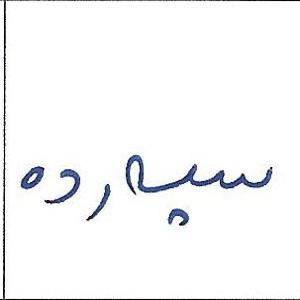 سپرده